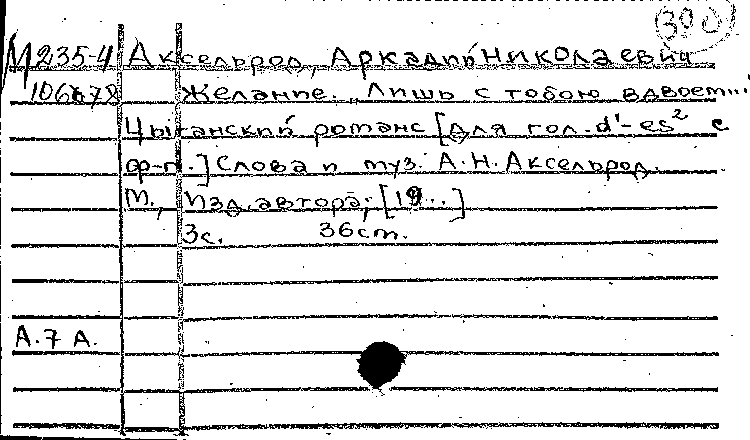 390
М 235-4 Аксельрод, Аркадий Николаевич
106678 Желание. „Лишь с тобою вдвоем..."
Цыганский романс [для гол. d'-es² с
ф-п.] Слова и муз. А.Н. Аксельрод.
М., Изд. автора, [19..]
3с. 36см.
А. 7 А.